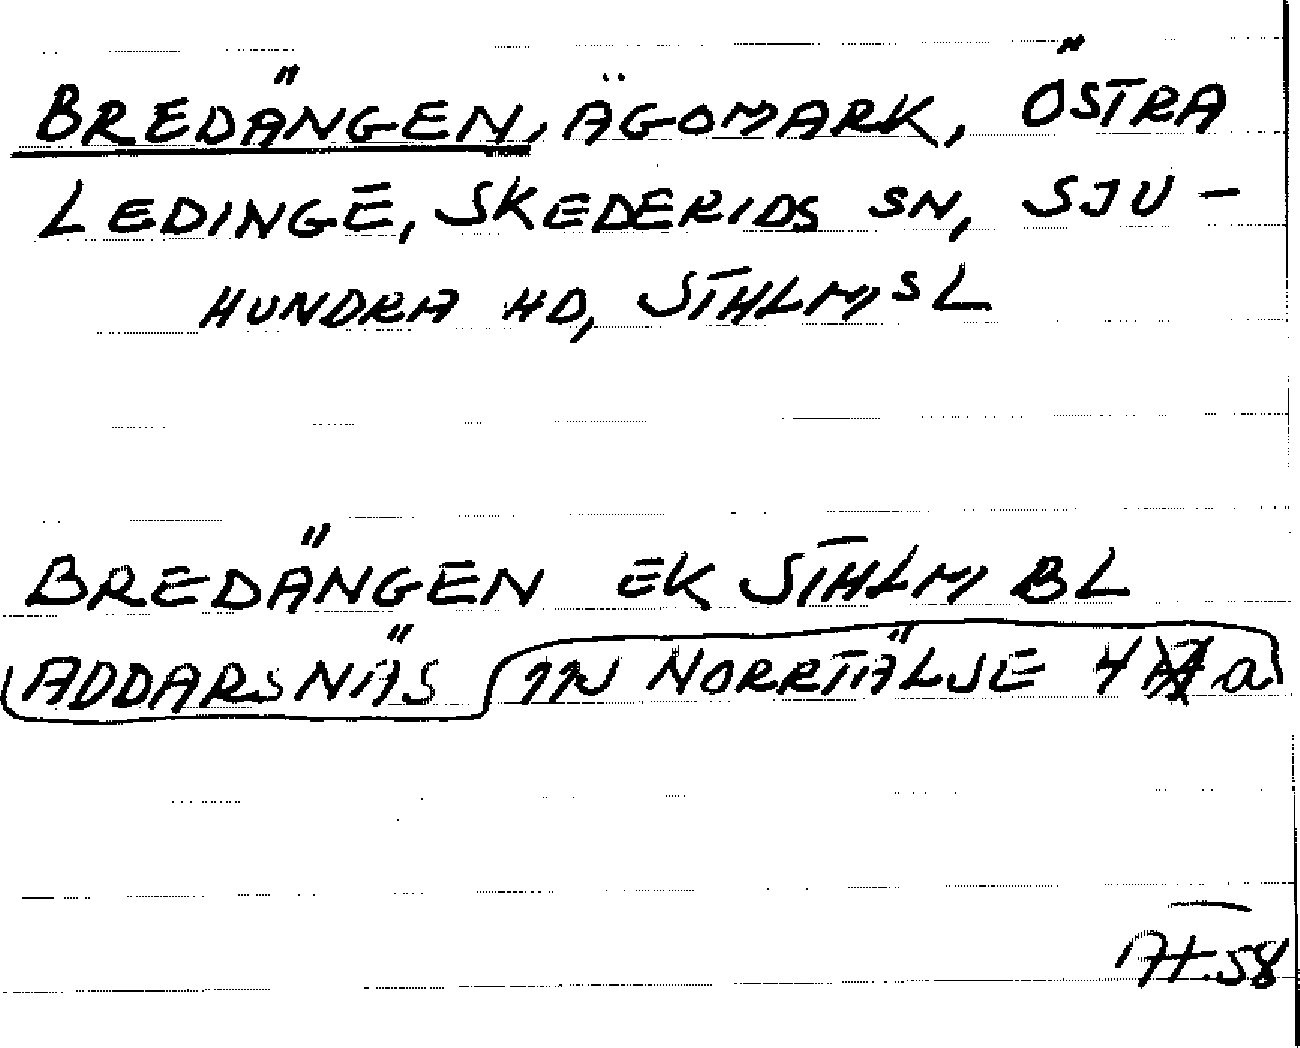 BREDÄNGEN, ÄGOMARK, ÖSTRA
LEDINGE, SKEDERIDS SN, SJU-
HUNDRA HD, STHLMS L
BREDÄNGEN EK STHLM BL
ADDARSNÄS NORRTÄLJE 4 a
58